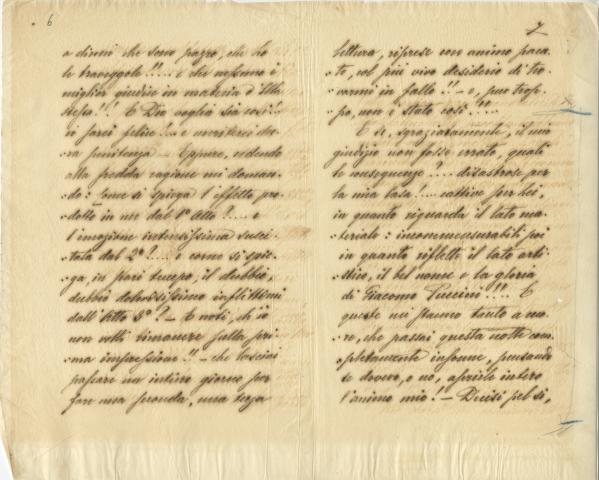 6
a dirmi che sono pazzo, che ho
le traveggole!!... e che nessuno è
miglior giudice in materia d'Ella
stessa!! E Dio voglia sia così!..
vi farei felice!... e meriterei du-
ra penitenza — Eppure, cedendo
alla fredda ragione mi doman-
do: Come si spiega l'effetto pro-
dotto in me dal 1º Atto?.... e
l'emozione intensissima susci-
tata dal 2º?.... e come si spie-
ga, in pari tempo, il dubbio,
dubbio dolorosissimo inflittomi
dall'Atto 3º? — E noti, ch'io
non volli rimanere sulla pri-
ma impressione!! — che lasciai
passare un intiero giorno per
fare una seconda, una terza
7
lettura, riprese con animo paca-
to, col più vivo desiderio di tro-
varmi in fallo!! — e, pur trop-
po, non è stato così!!!..
E se, sgraziatamente, il mio
giudizio non fosse errato, quali
le conseguenze?.... disastrose per
la mia Casa!.... cattive per lei,
in quanto riguarda il lato ma-
teriale: incommensurabili poi
in quanto riflette il lato arti-
stico, il bel nome e la gloria
di Giacomo Puccini!!!.. E
queste mi furono tanto a cuo-
re, che passai questa notte com-
pletamente insonne, pensando
se dovevo, o no, aprirle intero
l'animo mio! — Decisi pel sì,